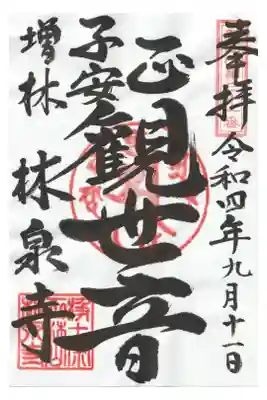 奉拝
令和四年九月十一日
正観世音
子安
増林
林泉寺